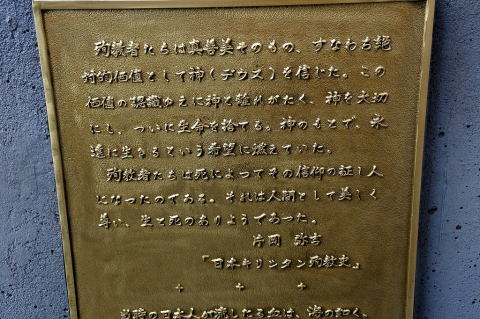 殉教者たちは真善美そのもの、すなわち絶
対的価値として神(デウス)を信じた。この
価値の認識ゆえに神と離れがたく、神を大切
にし、ついに生命を捨てる。神のもとで、永
遠に生きるという希望に燃えていた。
殉教者たちは死によってその信仰の証し人
になったのである。それは人間として美しく
尊い、生と死のありようであった。
片岡 弥吉
『日本キリシタン殉教史』
+ + +
当時の日本人が流したる血は、海の如く、